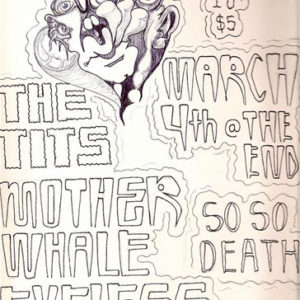 $5
MARCH
4th @ THE
END
THE
TITS
MOTHER
WHALE
EYELESS
SO SO
DEATH